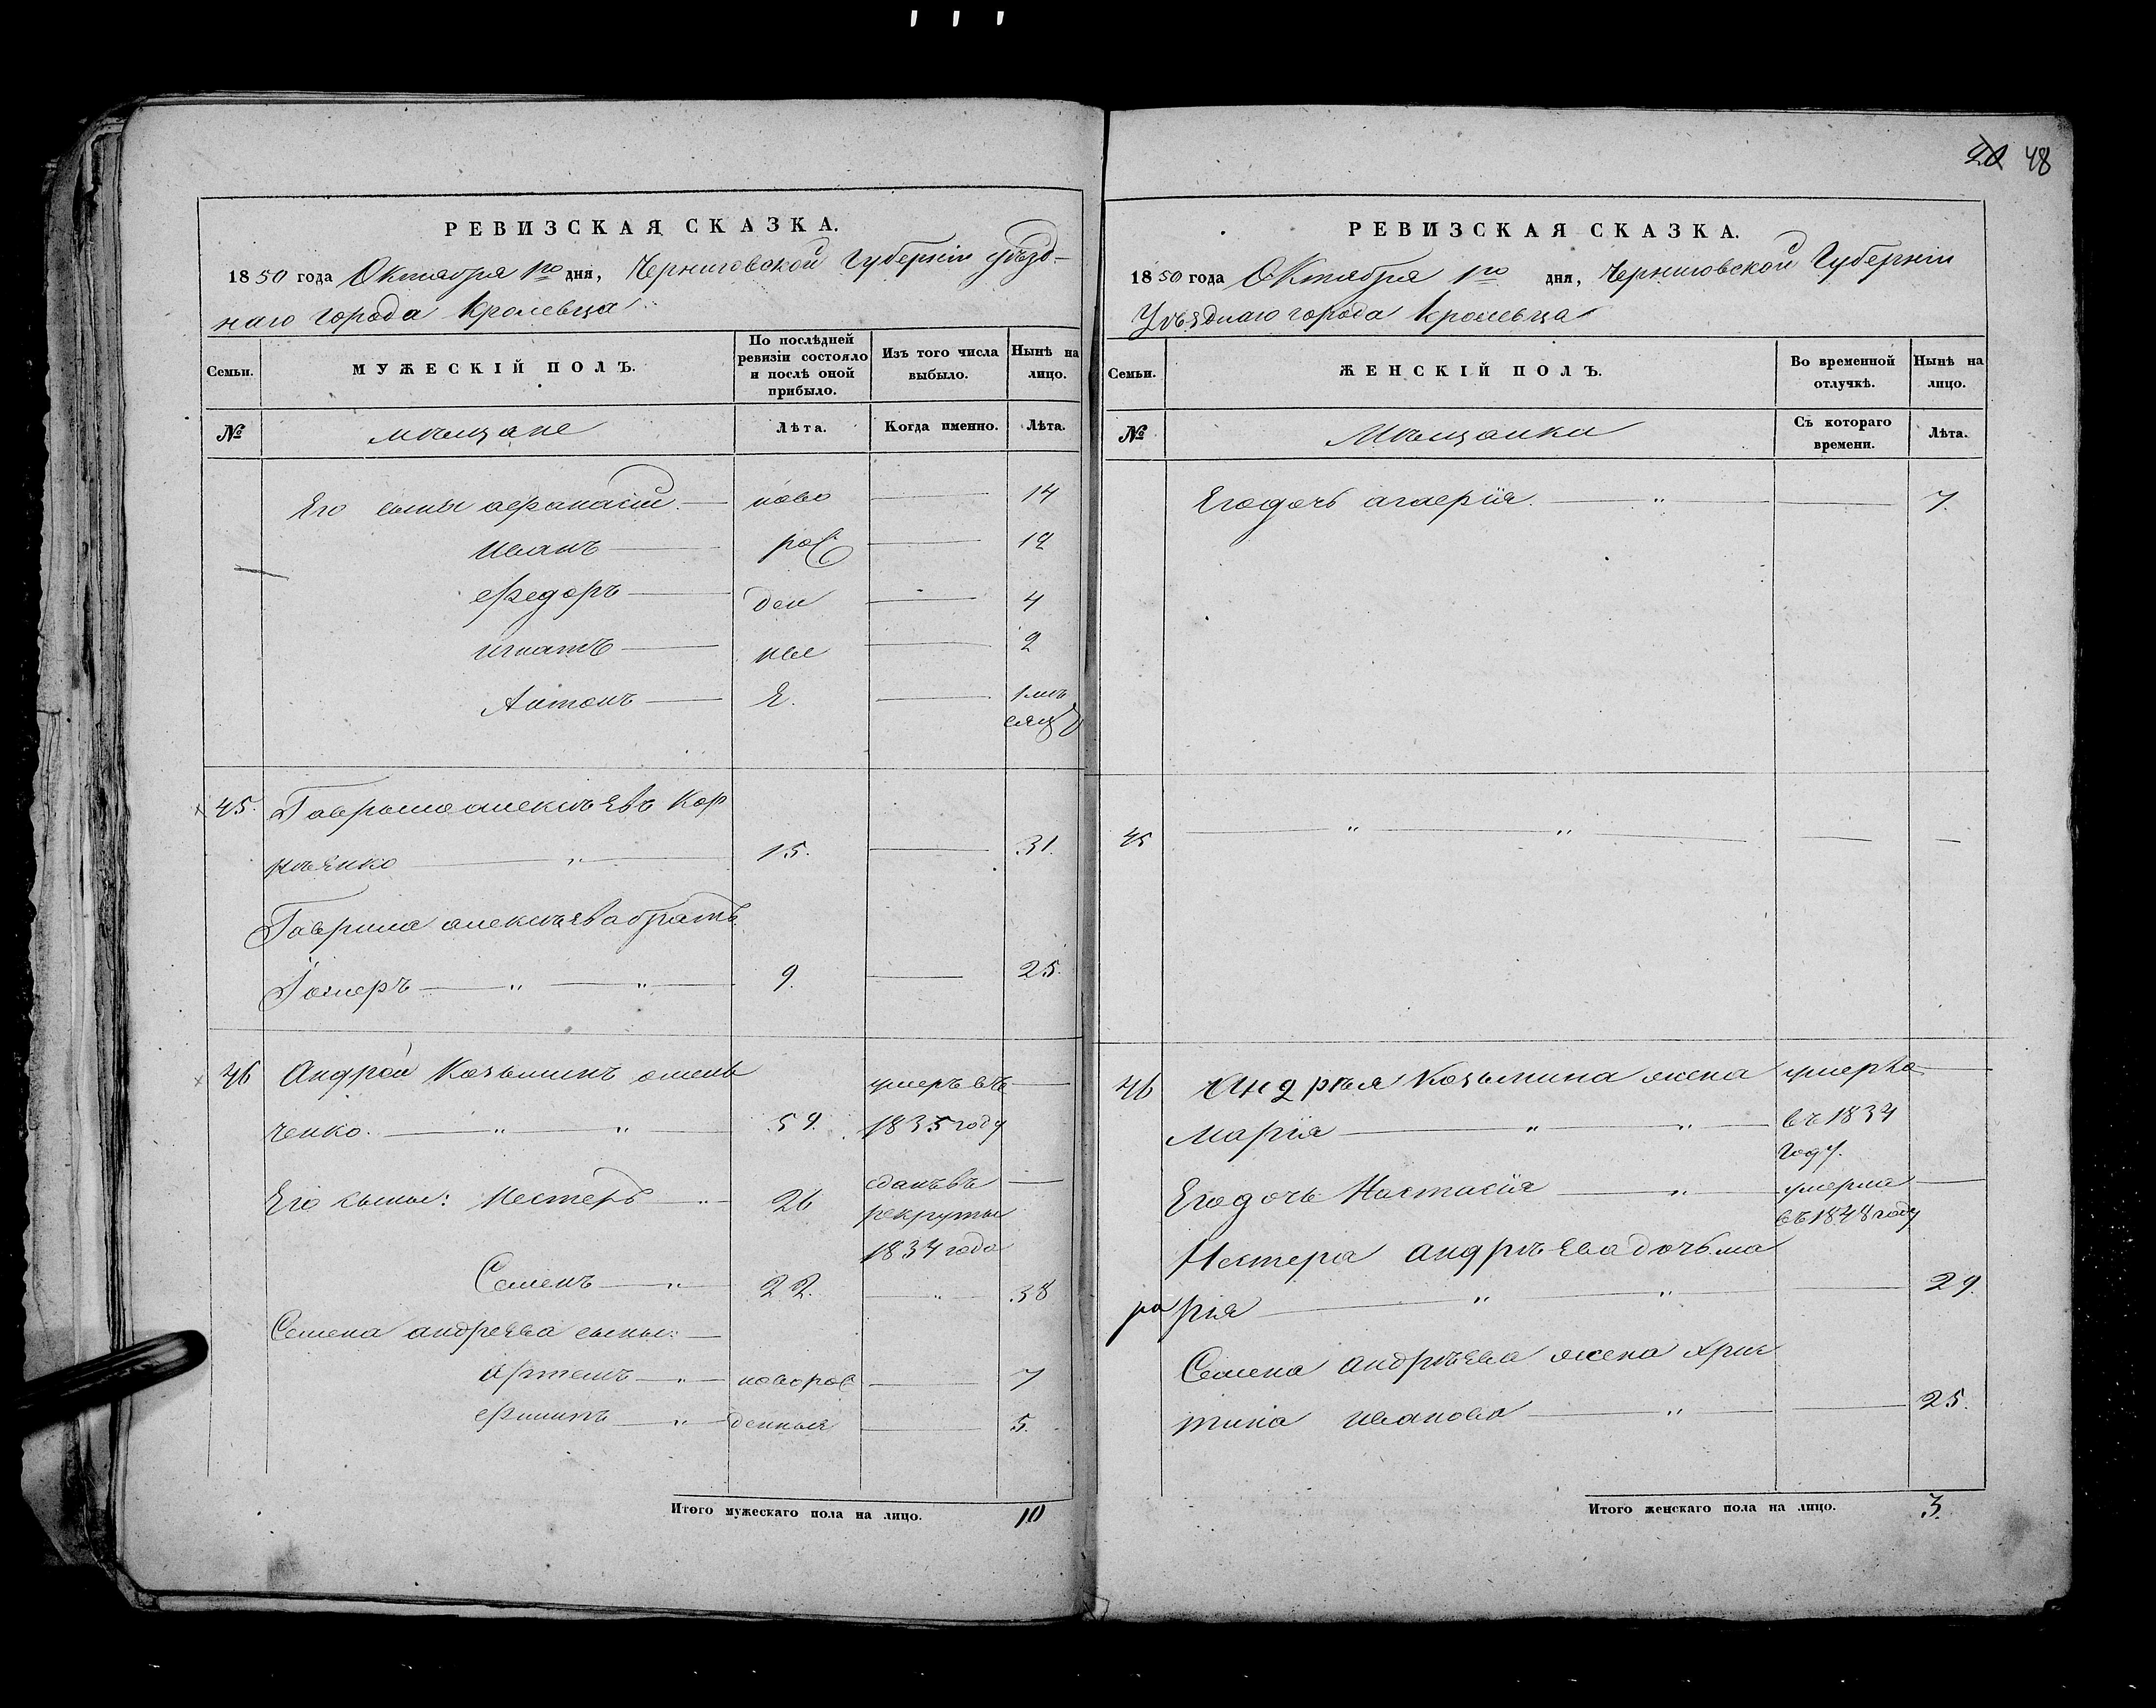 20 48
РЕВИЗСКАЯ СКАЗКА.
1850 года Октября 1го дня, Черниговской Губернiи уѣзд-
наго города Кролевца
Семьи. МУЖЕСКIЙ ПОЛЪ. По послѣдней ревизiи состояло и послѣ оной прибыло. Изъ того числа выбыло. Нынѣ на лицо.
№ мѣщане Лѣта. Когда именно. Лѣта.
Его сыны афанасiй — ново — 14
иванъ — рож — 12
федоръ — ден — 4
игнатъ — ные — 2
Антонъ — Я. — 1 мѣ
сяцъ
45. Гаврило алексѣевъ Кор
нѣенко — " — 15. — 31.
Гаврила алексѣева братъ
— " — " — 9. — 25.
46 Андрей Козьминъ омель умеръ въ —
ченко. — " — " — 59. 1835 году
Его сыны: Нестеръ — " 26 сданъ въ —
рекруты
1834 года
Семенъ — " — 22. — " — 38
Семена андреева сыны: —
артемъ — " — новорож — 7
филипъ — " — денныя — 5.
Итого мужескаго пола на лицо. 10
РЕВИЗСКАЯ СКАЗКА.
1850 года Октября 1го дня, Черниговской Губернiи
Уѣзднаго города Кролевца
Семьи. ЖЕНСКIЙ ПОЛЪ. Во временной отлучкѣ. Нынѣ на лицо.
№ Мѣщанки Съ котораго времени. Лѣта.
Его дочь агафiя. — " — — 7.
45 — " — " — — —
46 Андрѣя Козьмина жена умерла —
марiя — " — " — въ 1834
году.
Его дочь Настасiя — " — умерла —
въ 1848 году
Нестера андрѣева дочь ма
рiя — " — " — — 29.
Семена андрѣева жена хрис
тина иванова — " — — 25.
Итого женскаго пола на лицо. 3.